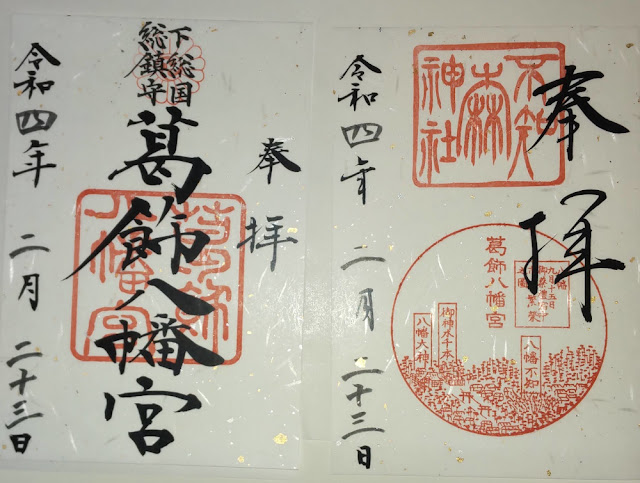 不知
森
神社
奉拝
葛飾八幡宮
御神木千本
八幡大神
八幡不知
令和四年二月二十三日
奉拝
下総国
総鎮守
葛飾八幡宮
葛飾
八幡宮
令和四年二月二十三日